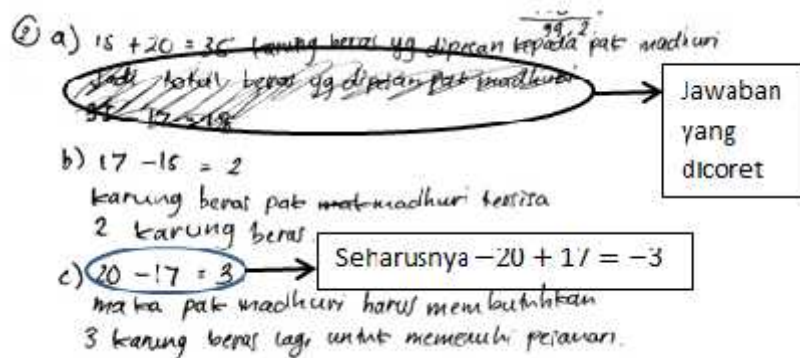 99,2
② a) 15 + 20 = 35 karung beras yg dipesan kepada pat madhuri
Jadi total beras yg dipesan pat madhuri
35 - 17 = 18
Jawaban
yang
dicoret
b) 17 - 15 = 2
karung beras pak mat madhuri tersisa
2 karung beras
c) 20 - 17 = 3
Seharusnya -20 + 17 = -3
maka pak madhuri harus membutuhkan
3 karung beras lagi untuk memenuhi pesanan.